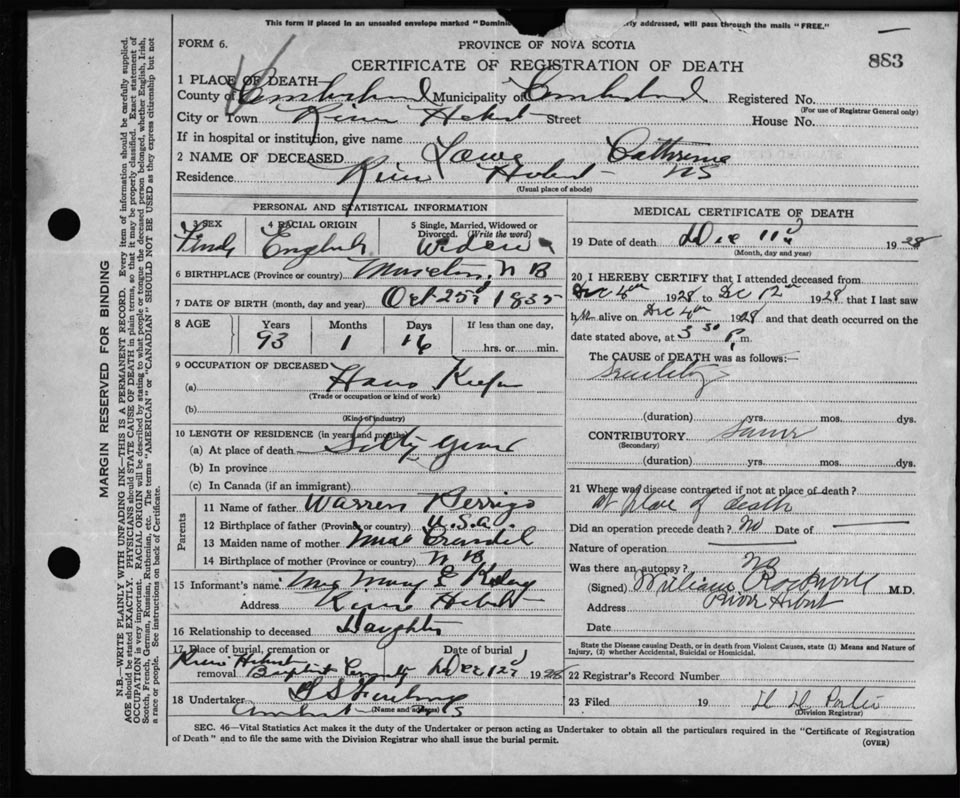 This form if placed in an unsealed envelope marked "Domini rly addressed, will pass through the mails "FREE."
FORM 6.
PROVINCE OF NOVA SCOTIA
883
CERTIFICATE OF REGISTRATION OF DEATH
1 PLACE OF DEATH
County of Cumberland Municipality of Cumberland Registered No.
(For use of Registrar General only)
City or Town River Hebert Street House No.
If in hospital or institution, give name
2 NAME OF DECEASED Lowe Cathrine
Residence River Hebert NS
(Usual place of abode)
PERSONAL AND STATISTICAL INFORMATION
3 SEX 4 RACIAL ORIGIN 5 Single, Married, Widowed or Divorced. (Write the word)
English
6 BIRTHPLACE (Province or country) Moncton, N B
7 DATE OF BIRTH (month, day and year) Oct 25 1835
8 AGE Years Months Days If less than one day,
93 1 16 hrs. or min.
9 OCCUPATION OF DECEASED
(a) House Keeper
(Trade or occupation or kind of work)
(b)
(Kind of industry)
10 LENGTH OF RESIDENCE (in years and months)
(a) At place of death years
(b) In province
(c) In Canada (if an immigrant)
Parents
11 Name of father Warren Perrigo
12 Birthplace of father (Province or country) U.S.A.
13 Maiden name of mother
14 Birthplace of mother (Province or country) N B
15 Informant's name Mrs Mary E
Address River Hebert
16 Relationship to deceased Daughter
17 Place of burial, cremation or removal Date of burial
River Hebert Baptist Dec 12 1928
18 Undertaker
(Name and address)
Amherst NS
MEDICAL CERTIFICATE OF DEATH
19 Date of death Dec 11 1928
(Month, day and year)
20 I HEREBY CERTIFY that I attended deceased from
Dec 4th 1928 to Dec 12th 1928 that I last saw
her alive on Dec 4th 1928 and that death occurred on the
date stated above, at 3 30 P. m.
The CAUSE of DEATH was as follows:—
Senility
(duration) yrs. mos. dys.
CONTRIBUTORY Same
(Secondary)
(duration) yrs. mos. dys.
21 Where was disease contracted if not at place of death?
at place of death
Did an operation precede death? No Date of
Nature of operation
Was there an autopsy? No
(Signed) William Rockwell M.D.
Address River Hebert
Date
State the Disease causing Death, or in death from Violent Causes, state (1) Means and Nature of Injury, (2) whether Accidental, Suicidal or Homicidal.
22 Registrar's Record Number
23 Filed 19
(Division Registrar)
SEC. 46—Vital Statistics Act makes it the duty of the Undertaker or person acting as Undertaker to obtain all the particulars required in the "Certificate of Registration
of Death" and to file the same with the Division Registrar who shall issue the burial permit.
(OVER)
MARGIN RESERVED FOR BINDING
N.B.—WRITE PLAINLY WITH UNFADING INK—THIS IS A PERMANENT RECORD. Every item of information should be carefully supplied.
AGE should be stated EXACTLY. PHYSICIANS should STATE CAUSE OF DEATH in plain terms, so that it may be properly classified. Exact statement of
OCCUPATION is very important. RACIAL ORIGIN will be described by stating to what people or tongue the deceased person belonged, whether English, Irish,
Scotch, French, German, Russian, Ruthenian, etc. The terms "AMERICAN" or "CANADIAN" SHOULD NOT BE USED as they express citizenship but not
a race or people. See instructions on back of Certificate.